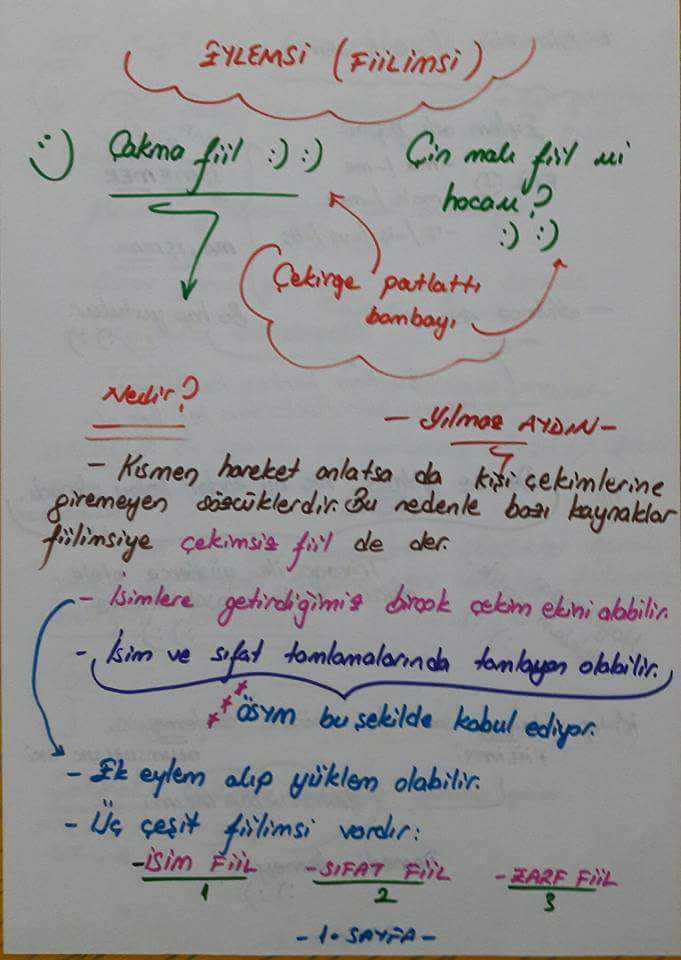 EYLEMSİ (FİİLİMSİ)
:) Çakma fiil :) :)
Çin malı fiil mi
hocam?
:) :)
Çekirge patlattı
bombayı
Nedir?
- Yılmaz AYDIN -
- Kısmen hareket anlatsa da kişi çekimlerine
giremeyen sözcüklerdir. Bu nedenle bazı kaynaklar
fiilimsiye çekimsiz fiil de der.
- İsimlere getirdiğimiz birçok çekim ekini alabilir.
- İsim ve sıfat tamlamalarında tamlayan olabilir.
*** ÖSYM bu şekilde kabul ediyor.
- Ek eylem alıp yüklem olabilir.
- Üç çeşit fiilimsi vardır:
- İSİM FİİL - SIFAT FİİL - ZARF FİİL
1 2 3
- 1. SAYFA -